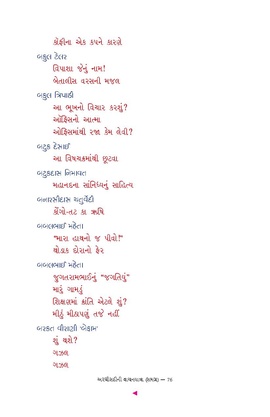 કોફીના એક કપને કારણે
બકુલ ટેલર
વિપાશા જેનું નામ!
બેતાલીસ વરસની મજલ
બકુલ ત્રિપાઠી
આ ભૂખનો વિચાર કરશું?
ઓફિસનો આત્મા
ઓફિસમાંથી રજા કેમ લેવી?
બટુક દેસાઈ
આ વિષચક્રમાંથી છૂટવા
બટુકદાસ નિમાવત
મહાનદના સાંનિધ્યનું સાહિત્ય
બનારસીદાસ ચતુર્વેદી
કોંગો-તટ કા ઋષિ
બબલભાઈ મહેતા
"મારા હાથનો જ પીવો!"
થોડાક દોરાનો ફેર
બબલભાઈ મહેતા
જુગતરામભાઈનું "જગતિયું"
મારું ગામડું
શિક્ષણમાં ક્રાંતિ એટલે શું?
મીઠું મીઠાપણું તજે નહીં
બરકત વીરાણી 'બેફામ'
શું થશે?
ગઝલ
ગઝલ
અરધીસદીની વાચનયાત્રા (સમગ્ર) — 76